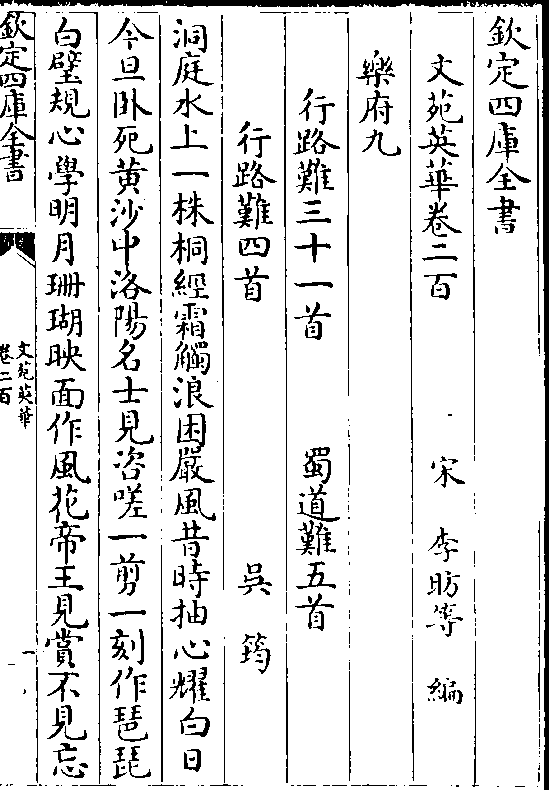 欽定四庫全書
文苑英華卷二百
宋 李昉等 編
樂府九
行路難三十一首 蜀道難五首
行路難四首 吳筠
洞庭水上一株桐經霜觸浪困嚴風昔時抽心耀白日
今旦卧死黃沙中洛陽名士見咨嗟一剪一刻作琵琶
白璧規心學明月珊瑚映面作風花帝王見賞不見忘
欽定四庫全書
文苑英華
卷二百
一